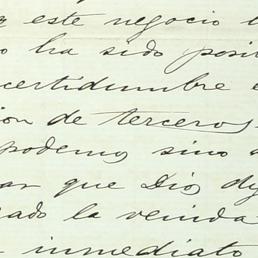 este negocio
o ha sido posi
certidumbre e
ion de terceros
podemos sino a
ar que Dios dy
iado la venida
inmediato